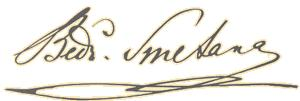 Bedř. Smetana